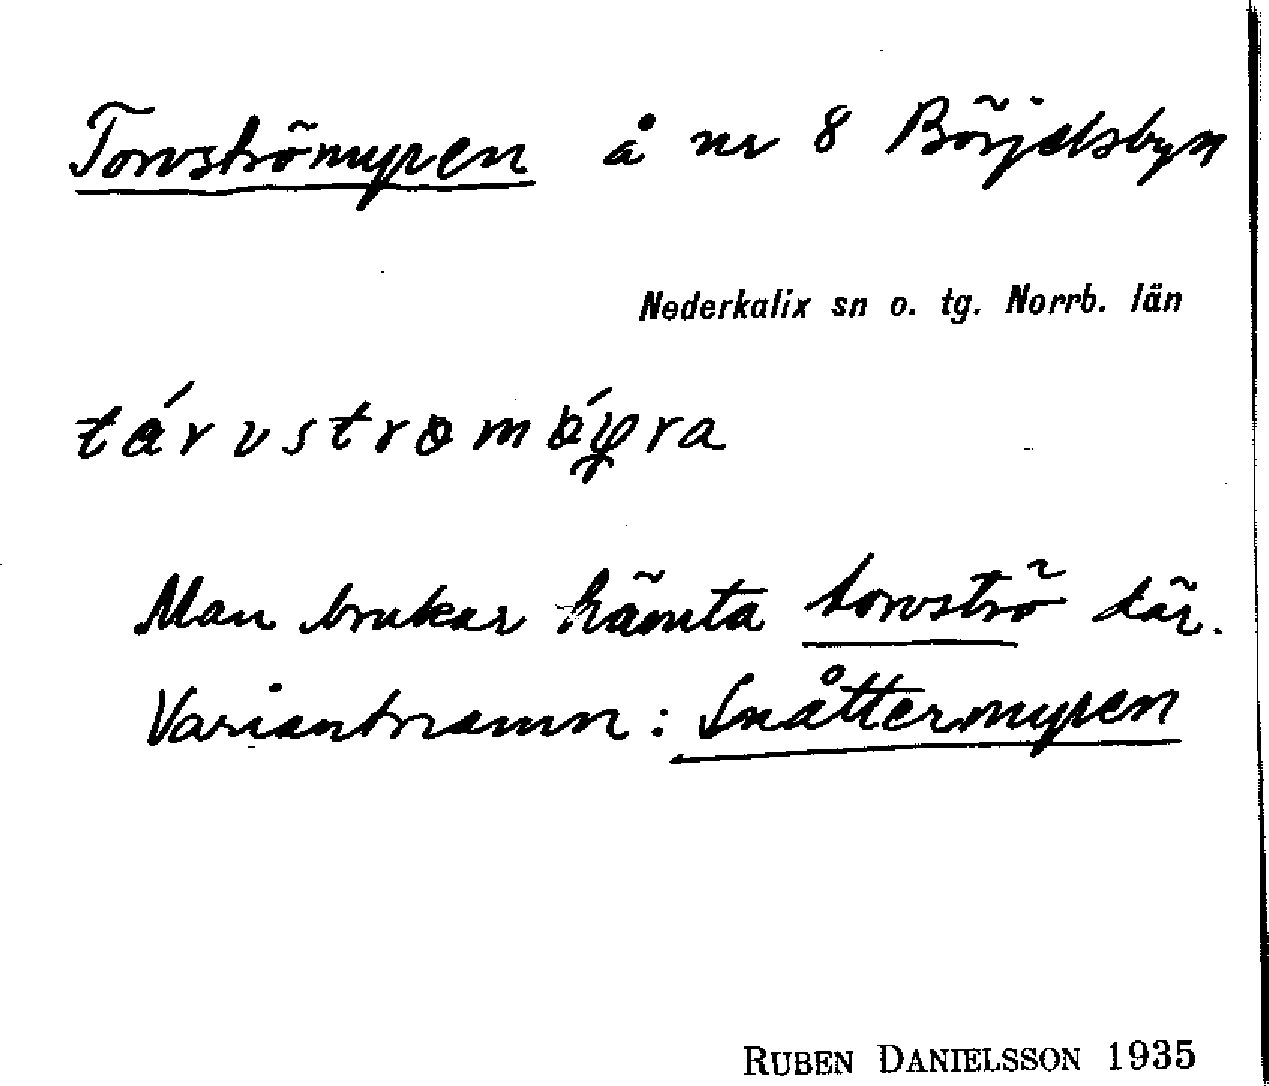 Torvströmyren å nr 8 Börjelsbyn
Nederkalix sn o. tg. Norrb. län
Man brukar hämta torvströ där.
Variantnamn: Snåttermyren
RUBEN DANIELSSON 1935